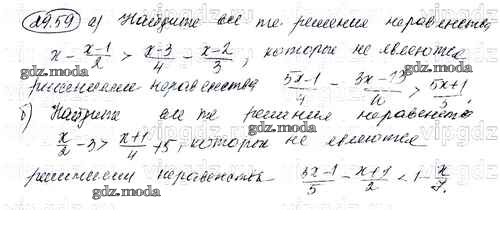 29.59 а) Найдите все те решения неравенства
x - (x-1)/2 > (x-3)/4 - (x-2)/3, которые не являются
решениями неравенства (5x-1)/4 - (3x-13)/10 > (5x+1)/3.
б) Найдите все те решения неравенства
x/2 - 3 > (x+1)/4 + 5, которые не являются
решениями неравенства (3x-1)/5 - (x+1)/2 < 1 - x/7.
gdz.moda
gdz.moda
gdz.moda
gdz.moda
gdz.moda